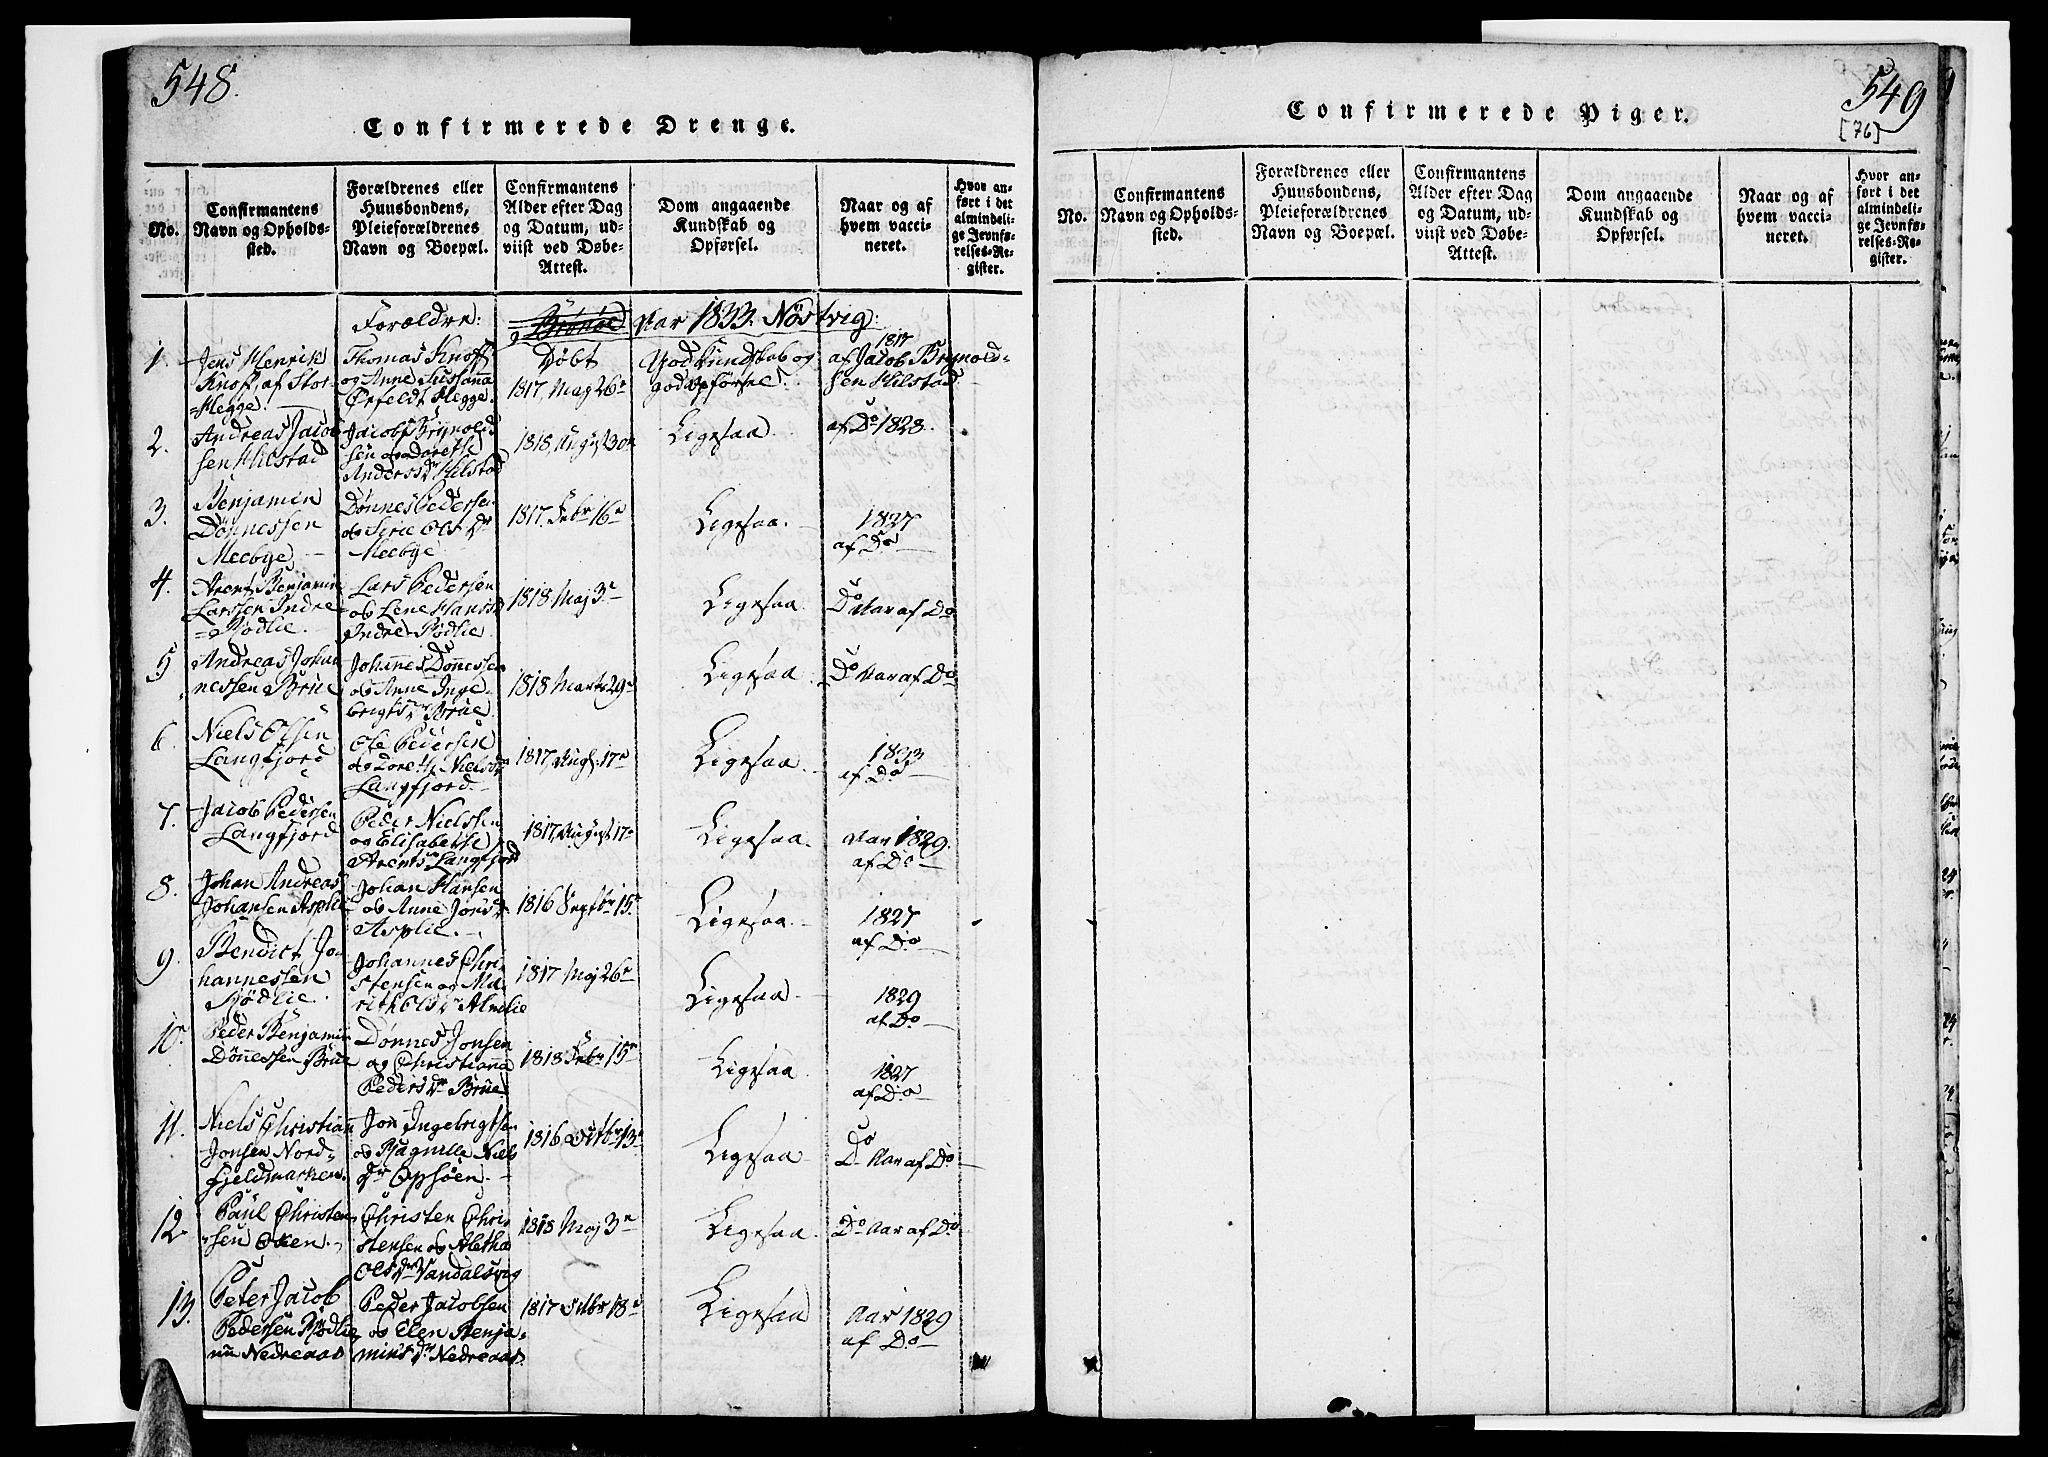 548.
Confirmerede Drenge.
No.
Confirmantens
Navn og Opholds-
sted.
Forældrenes eller
Huusbondens,
Pleieforældrenes
Navn og Boepæl.
Confirmantens
Alder efter Dag
og Datum, ud-
viist ved Døbe-
Attest.
Dom angaaende
Kundskab og
Opførsel.
Naar og af
hvem vacci-
neret.
Hvor an-
ført i det
almindeli-
ge Jevnfø-
relses-Re-
gister.
Forældre:
Aar 1833. Nöstvig:
1.
Jens Henrik
Knoff, af Stor-
=Hegge.
Thomas Knoff
og Anne Sussanna
Ørfeldt Hegge.
Døbt
1817, Maj 26e
God Kundskab og
god Opförsel.
1817
af Jacob Brynold-
sen Hilstad
2.
Andreas Jacob
sen Hilstad
Jacob Brynold
sen og Dorethe
Andersdr Hilstad
1818 August 30e
Ligesaa
af Do 1828.
3.
Benjamin
Dönnessen
Meebye
Dönnes Pedersen
og Sirie Olsdr
Meebye
1817, Febr 16e
Ligesaa.
1827
af Do
4.
Arent Benjamin
Larssen Indre
=Rødlie.
Lars Pedersen
og Lene Hansd
Indre Rødlie.
1818 Maj 3e
Ligesaa.
Do Aar af Do
5
Andreas Johan
nessen Brue
Johannes Dönnessen
og Anne Inge
brigtsdr Brue.
1818 Marts 29e
Ligesaa
Do Aar af Do
6.
Niels Olsen
Langfjord
Ole Pedersen
og Dorethe Nielsdr
Langfjord
1817, Aug. 17e
Ligesaa
1833
af Do
7.
Jacob Pedersen
Langfjord
Peder Nielssen
og Elisabethe
Arentsdr Langfjord
1817, August 17e
Ligesaa.
Aar 1829.
af Do
8.
Johan Andreas
Johansen Asplie
Johan Hansen
og Anne Jonsdr
Asplie.
1816 Septbr 15e
Ligesaa
1827
af Do
9.
Bendict Jo-
hannessen
Rødlie.
Johannes Chri
stensen og Ma
rith Olsdr Almlie
1817 Maj 26e
Ligesaa
1829
af Do
10.
Peder Benjamin
Dönnessen Brue
Dønnes Jonsen
og Christianna
Pedersdr Brue
1818 Febr 15e
Ligesaa
1827
af Do
11.
Niels Christian
Jonsen Nord-
fjeldmarken.
Jon Ingebrigtsen
og Ragnille Niels
dr Opsöen.
1816 Octbr 13e
Ligesaa
Do Aar af Do
12
Paul Christen
sen Oxen.
Christen Chri
stensen og Aletha
Olsdr Vandalsvig
1818 Maj 3e
Ligesaa.
Do Aar af Do
13.
Peter Jacob
Pedersen Rødlie
nu Nedreaas
Peder Jacobsen
og Elen Benja-
minsdr Nedreaas.
1817 Octbr 18e
Ligesaa
Aar 1829
af Do
549
[76]
Confirmerede Piger.
No.
Confirmantens
Navn og Opholds-
sted.
Forældrenes eller
Huusbondens,
Pleieforældrenes
Navn og Boepæl.
Confirmantens
Alder efter Dag
og Datum, ud-
viist ved Døbe-
Attest.
Dom angaaende
Kundskab og
Opførsel.
Naar og af
hvem vacci-
neret.
Hvor an-
ført i det
almindeli-
ge Jevnfø-
relses-Re-
gister.